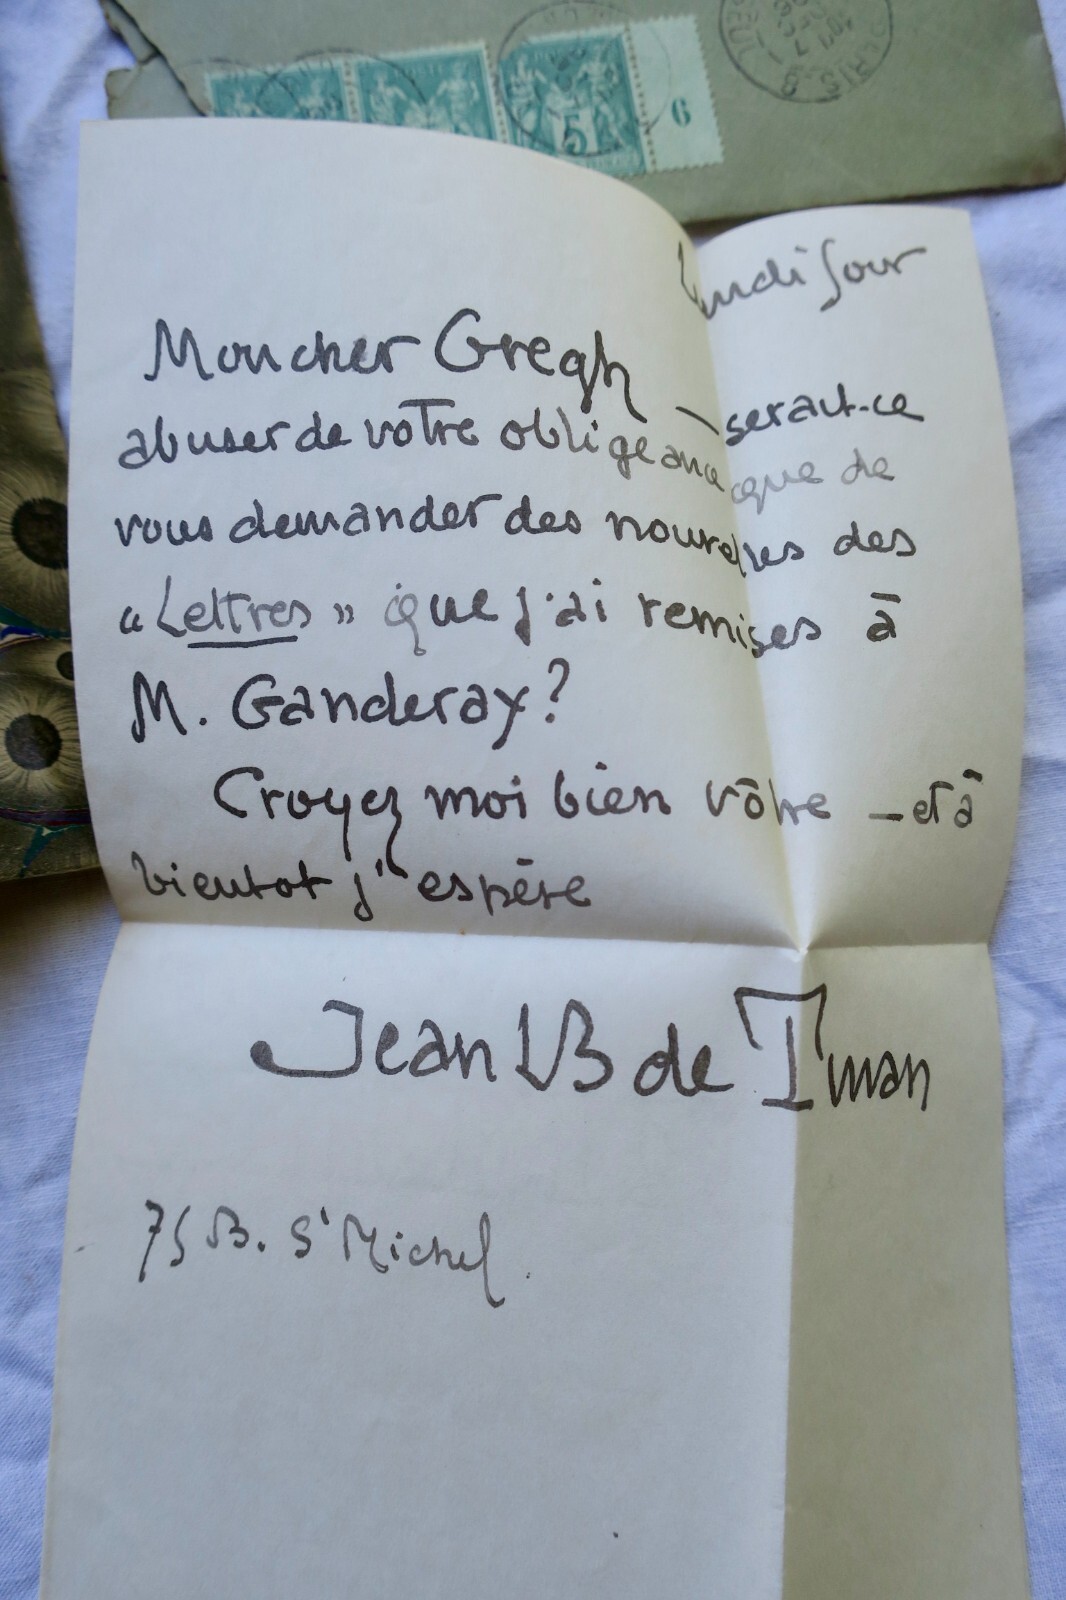 6
5
Lundi soir
Mon cher Gregh
— serait-ce
abuser de votre obligeance que de
vous demander des nouvelles des
« Lettres » que j'ai remises à
M. Ganderax?
Croyez moi bien vôtre — et à
bientot j'espère
Jean B de Tinan
75 B. St Michel